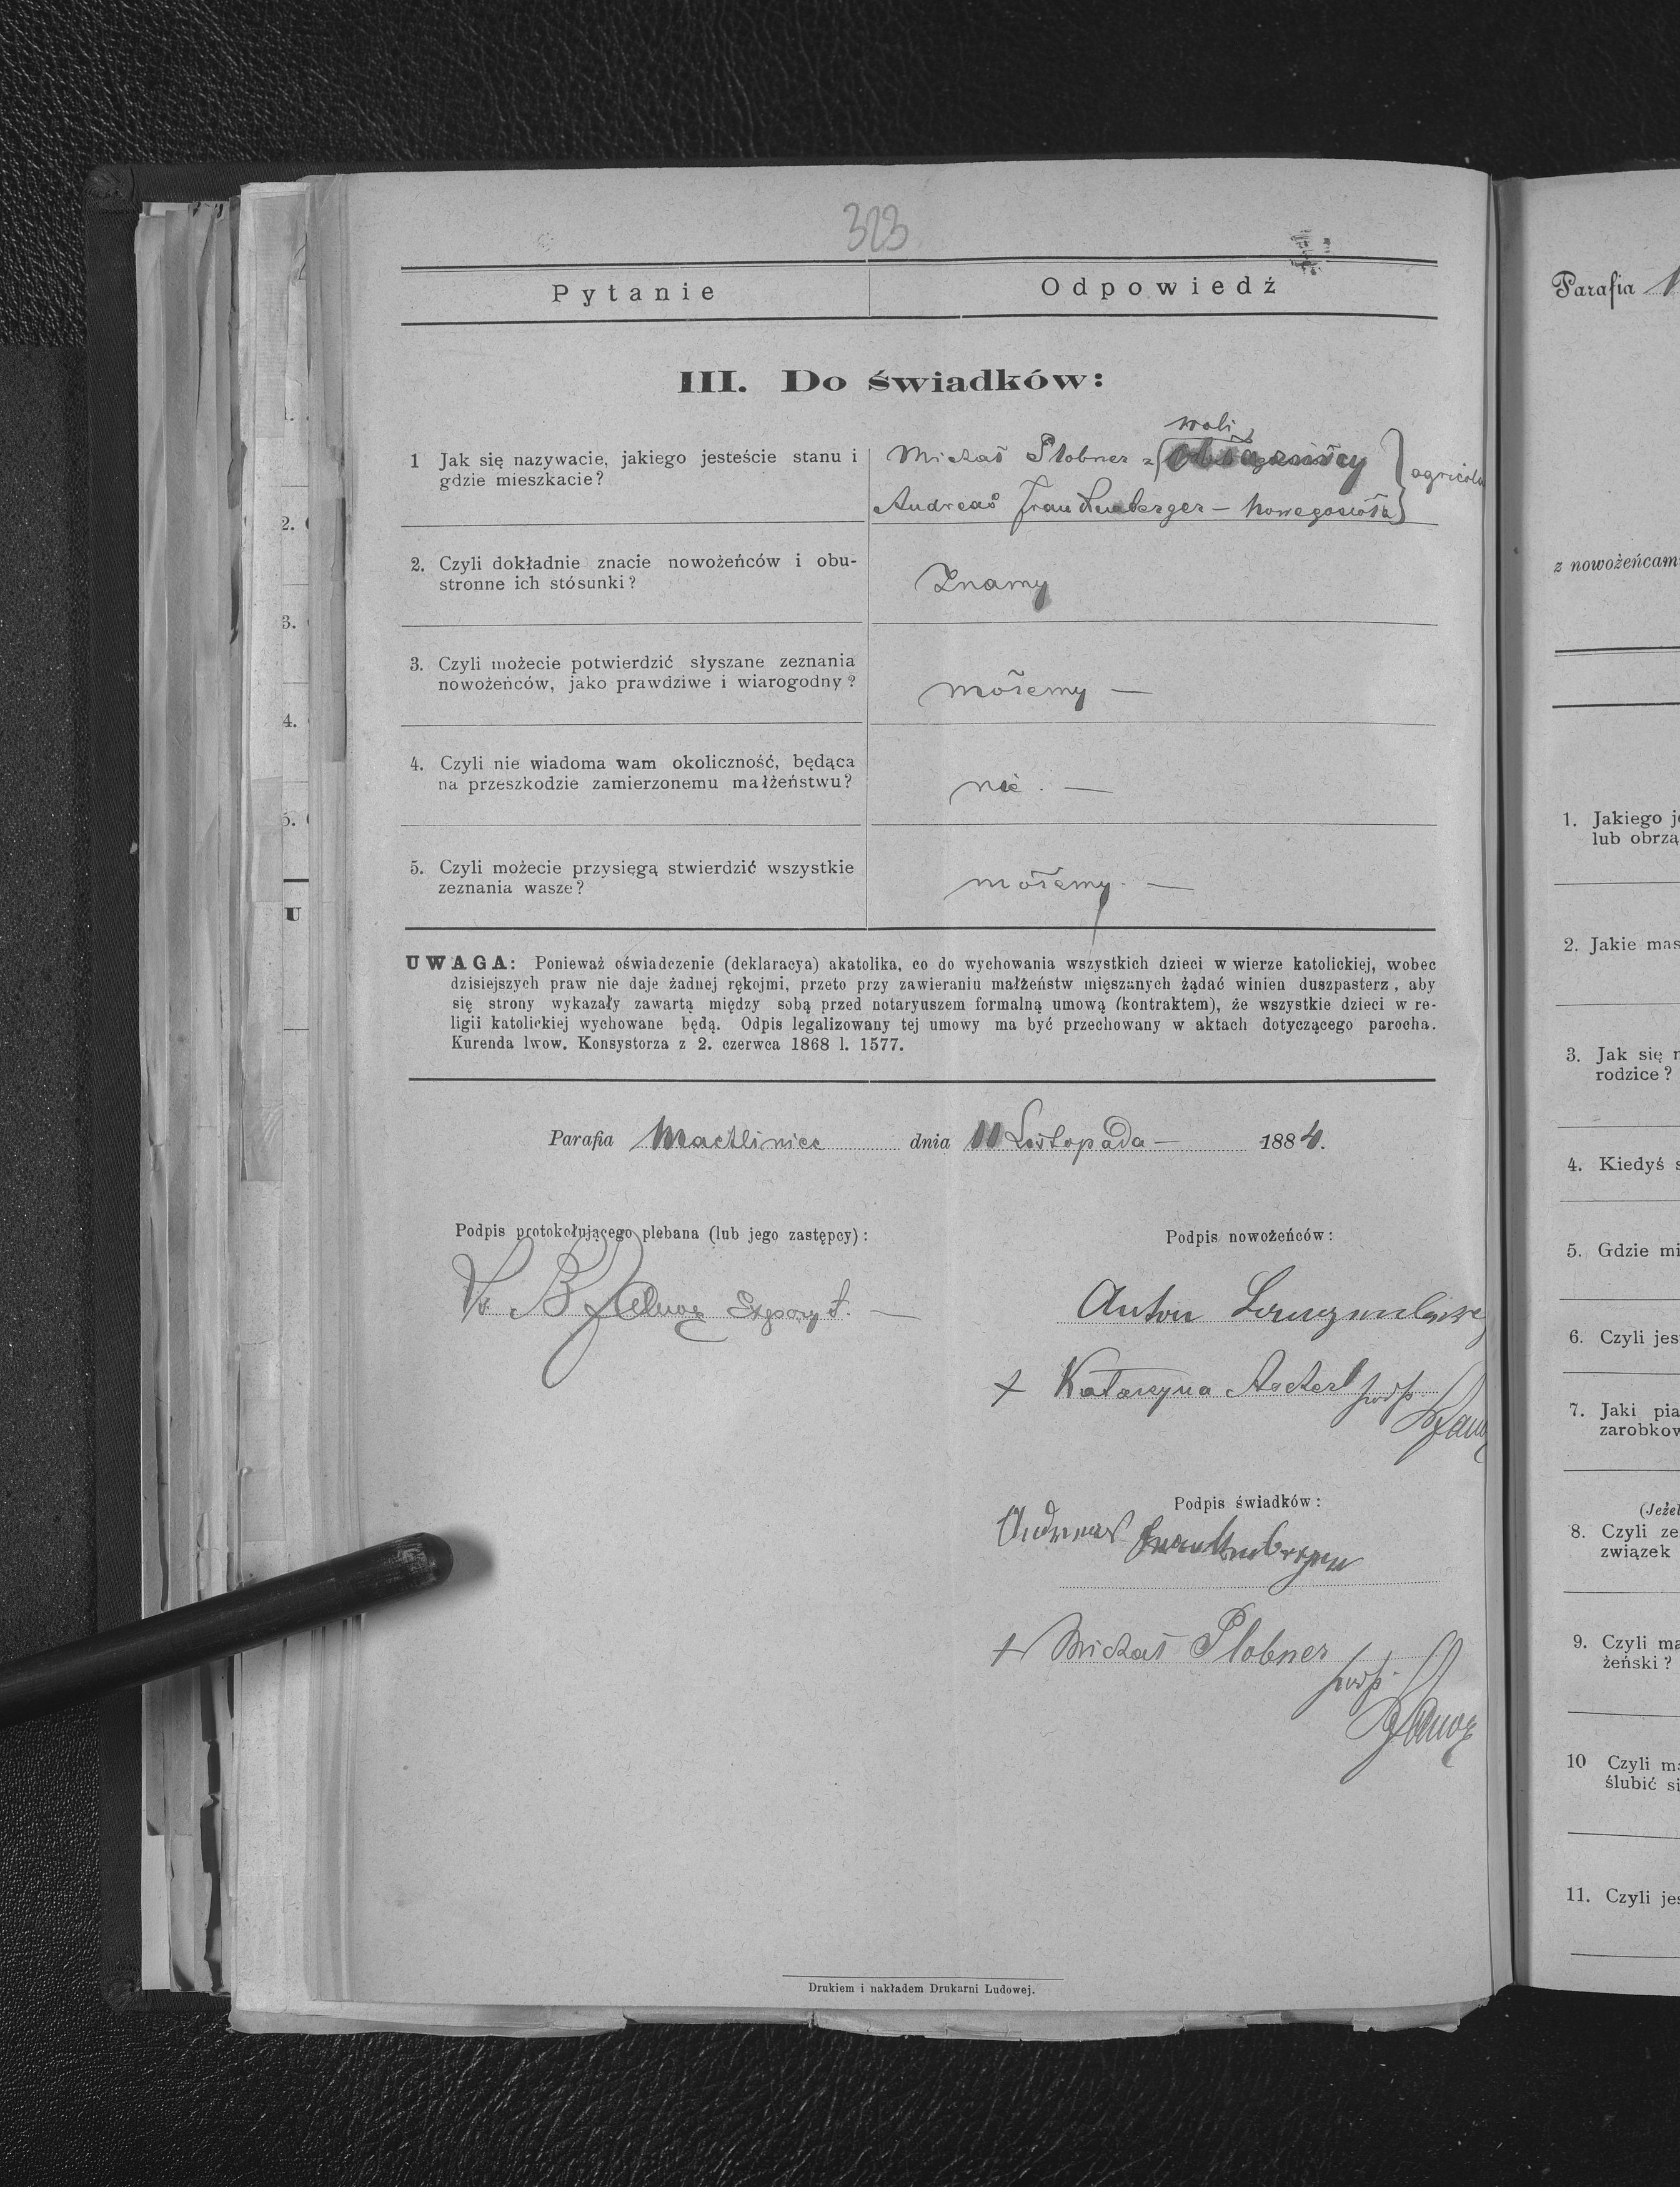 323
Pytanie Odpowiedź
III. Do świadków:
1 Jak się nazywacie, jakiego jesteście stanu i
gdzie mieszkacie?
woli
Michał Plobner z
Andreas Frauenberger – Nowegosioła
agricola
2. Czyli dokładnie znacie nowożeńców i obu-
stronne ich stósunki?
Znamy
3. Czyli możecie potwierdzić słyszane zeznania
nowożeńców, jako prawdziwe i wiarogodny?
możemy —
4. Czyli nie wiadoma wam okoliczność, będąca
na przeszkodzie zamierzonemu małżeństwu?
nie. —
5. Czyli możecie przysięgą stwierdzić wszystkie
zeznania wasze?
możemy. —
UWAGA: Ponieważ oświadczenie (deklaracya) akatolika, co do wychowania wszystkich dzieci w wierze katolickiej, wobec
dzisiejszych praw nie daje żadnej rękojmi, przeto przy zawieraniu małżeństw mięszanych żądać winien duszpasterz, aby
się strony wykazały zawartą między sobą przed notaryuszem formalną umową (kontraktem), że wszystkie dzieci w re-
ligii katolickiej wychowane będą. Odpis legalizowany tej umowy ma być przechowany w aktach dotyczącego parocha.
Kurenda lwow. Konsystorza z 2. czerwca 1868 l. 1577.
Parafia Machliniec dnia 11 Listopada — 1884.
Podpis protokołującego plebana (lub jego zastępcy):
Podpis nowożeńców:
Anton
+ Katarzyna Ascherl podp
Podpis świadków:
Andreas
+ Michał Plobner
podp.
Drukiem i nakładem Drukarni Ludowej.
Parafia
z nowożeńcam
1. Jakiego j
lub obrzą
2. Jakie mas
3. Jak się n
rodzice?
4. Kiedyś s
5. Gdzie mi
6. Czyli jes
7. Jaki pia
zarobkow
(Jeżel
8. Czyli ze
związek
9. Czyli ma
żeński?
10 Czyli ma
ślubić si
11. Czyli jes